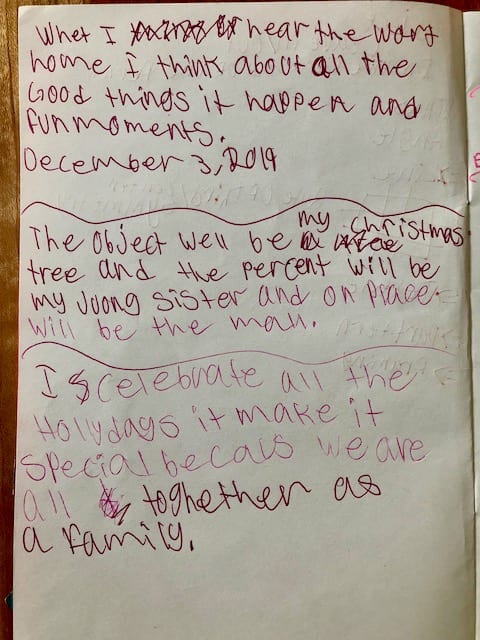 Whet I hear the word
home I think about all the
Good things it happen and
fun moments.
December 3, 2019
my christmas
The object well be a
tree and the percent will be
my yoong sister and on place
will be the mall.
I celebrate all the
Hollydays it make it
special becais we are
all toghether as
a family.